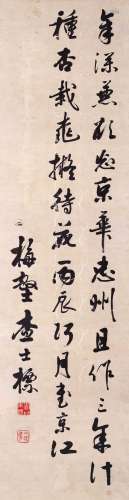 年深兼欲忘京華忠州且作三年計
種杏栽桃擬待花丙辰月書京江
梅壑查士標